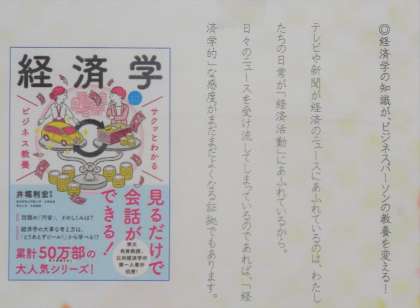 ◎経済学の知識が、ビジネスパーソンの教養を変える！
テレビや新聞が経済のニュースにあふれているのは、わたし
たちの日常が「経済活動」にあふれているから。
日々のニュースを受け流してしまっているのであれば、「経
済学的」な感度がまだまだよくなる証拠でもあります。
サクッとわかる
ビジネス教養
経済学
井堀利宏
見るだけで
会話が
できる！
累計50万部の
大人気シリーズ！